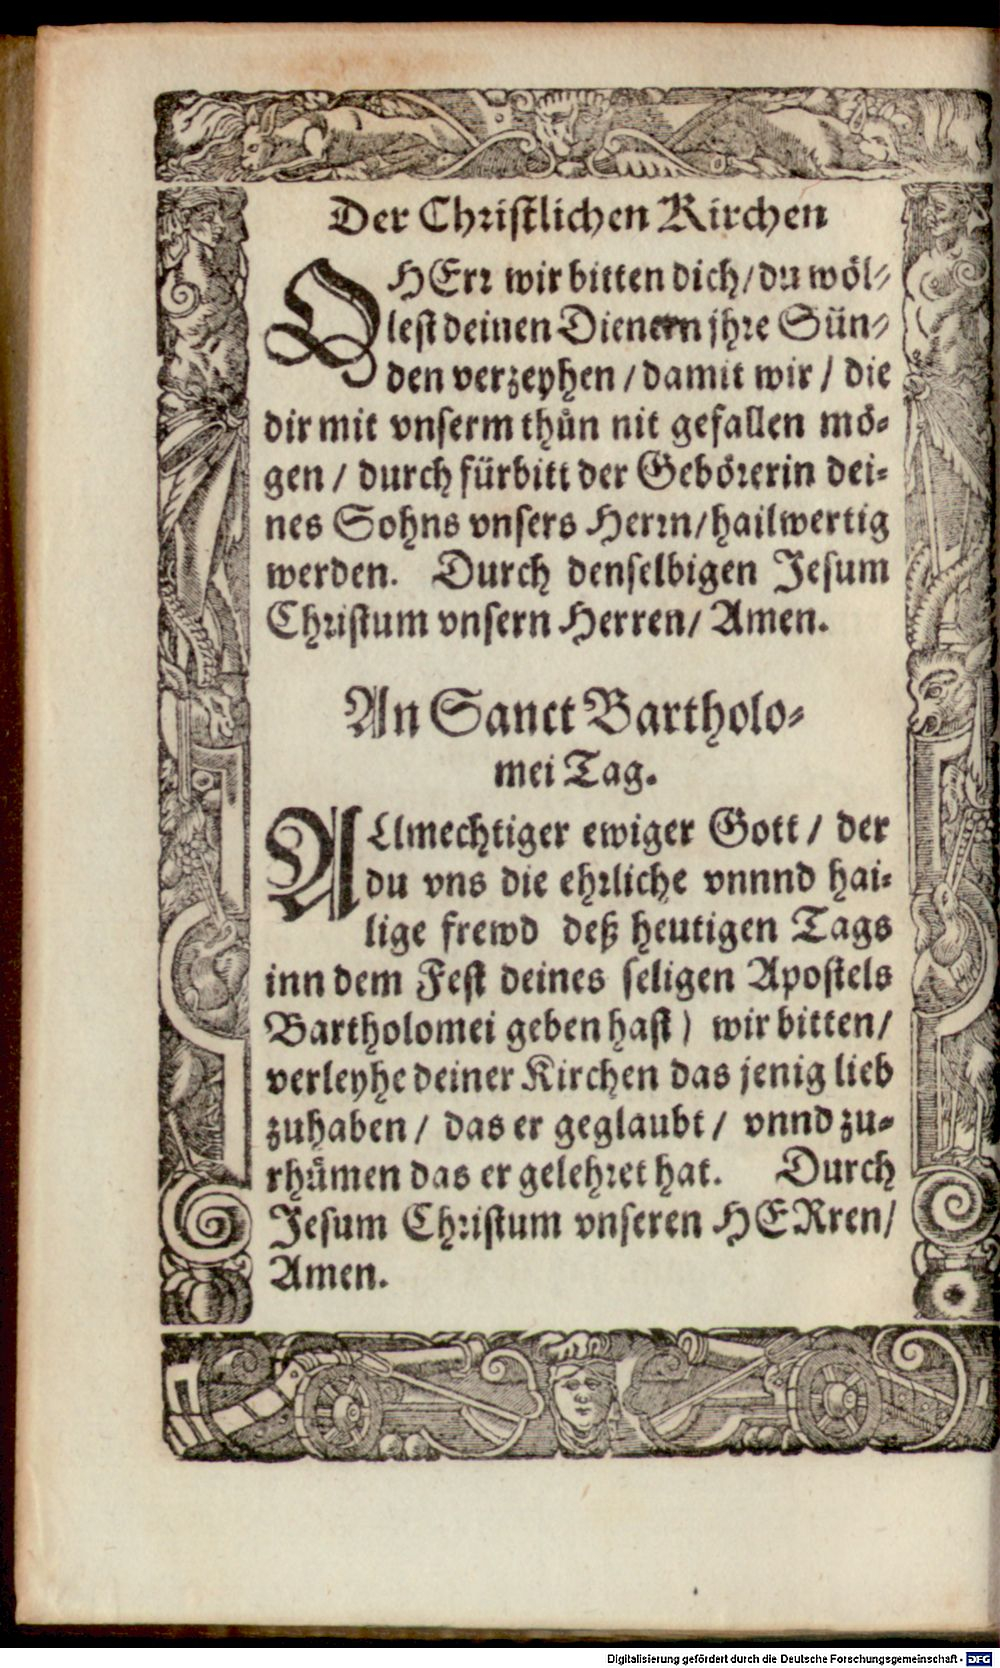 Der Christlichen Kirchen
O HErr wir bitten dich/ du wöl⸗
lest deinen Dienern jhre Sün⸗
den verzeyhen / damit wir / die
dir mit vnserm thůn nit gefallen mö⸗
gen / durch fürbitt der Gebörerin dei⸗
nes Sohns vnsers Herrn/ hailwertig
werden. Durch denselbigen Jesum
Christum vnsern Herren/ Amen.
An Sanct Bartholo⸗
mei Tag.
ALlmechtiger ewiger Gott / der
du vns die ehrliche vnnnd hai⸗
lige frewd deß heutigen Tags
inn dem Fest deines seligen Apostels
Bartholomei geben hast) wir bitten/
verleyhe deiner Kirchen das jenig lieb
zuhaben / das er geglaubt / vnnd zu⸗
rhůmen das er gelehret hat. Durch
Jesum Christum vnseren HERren/
Amen.
Digitalisierung gefördert durch die Deutsche Forschungsgemeinschaft - DFG